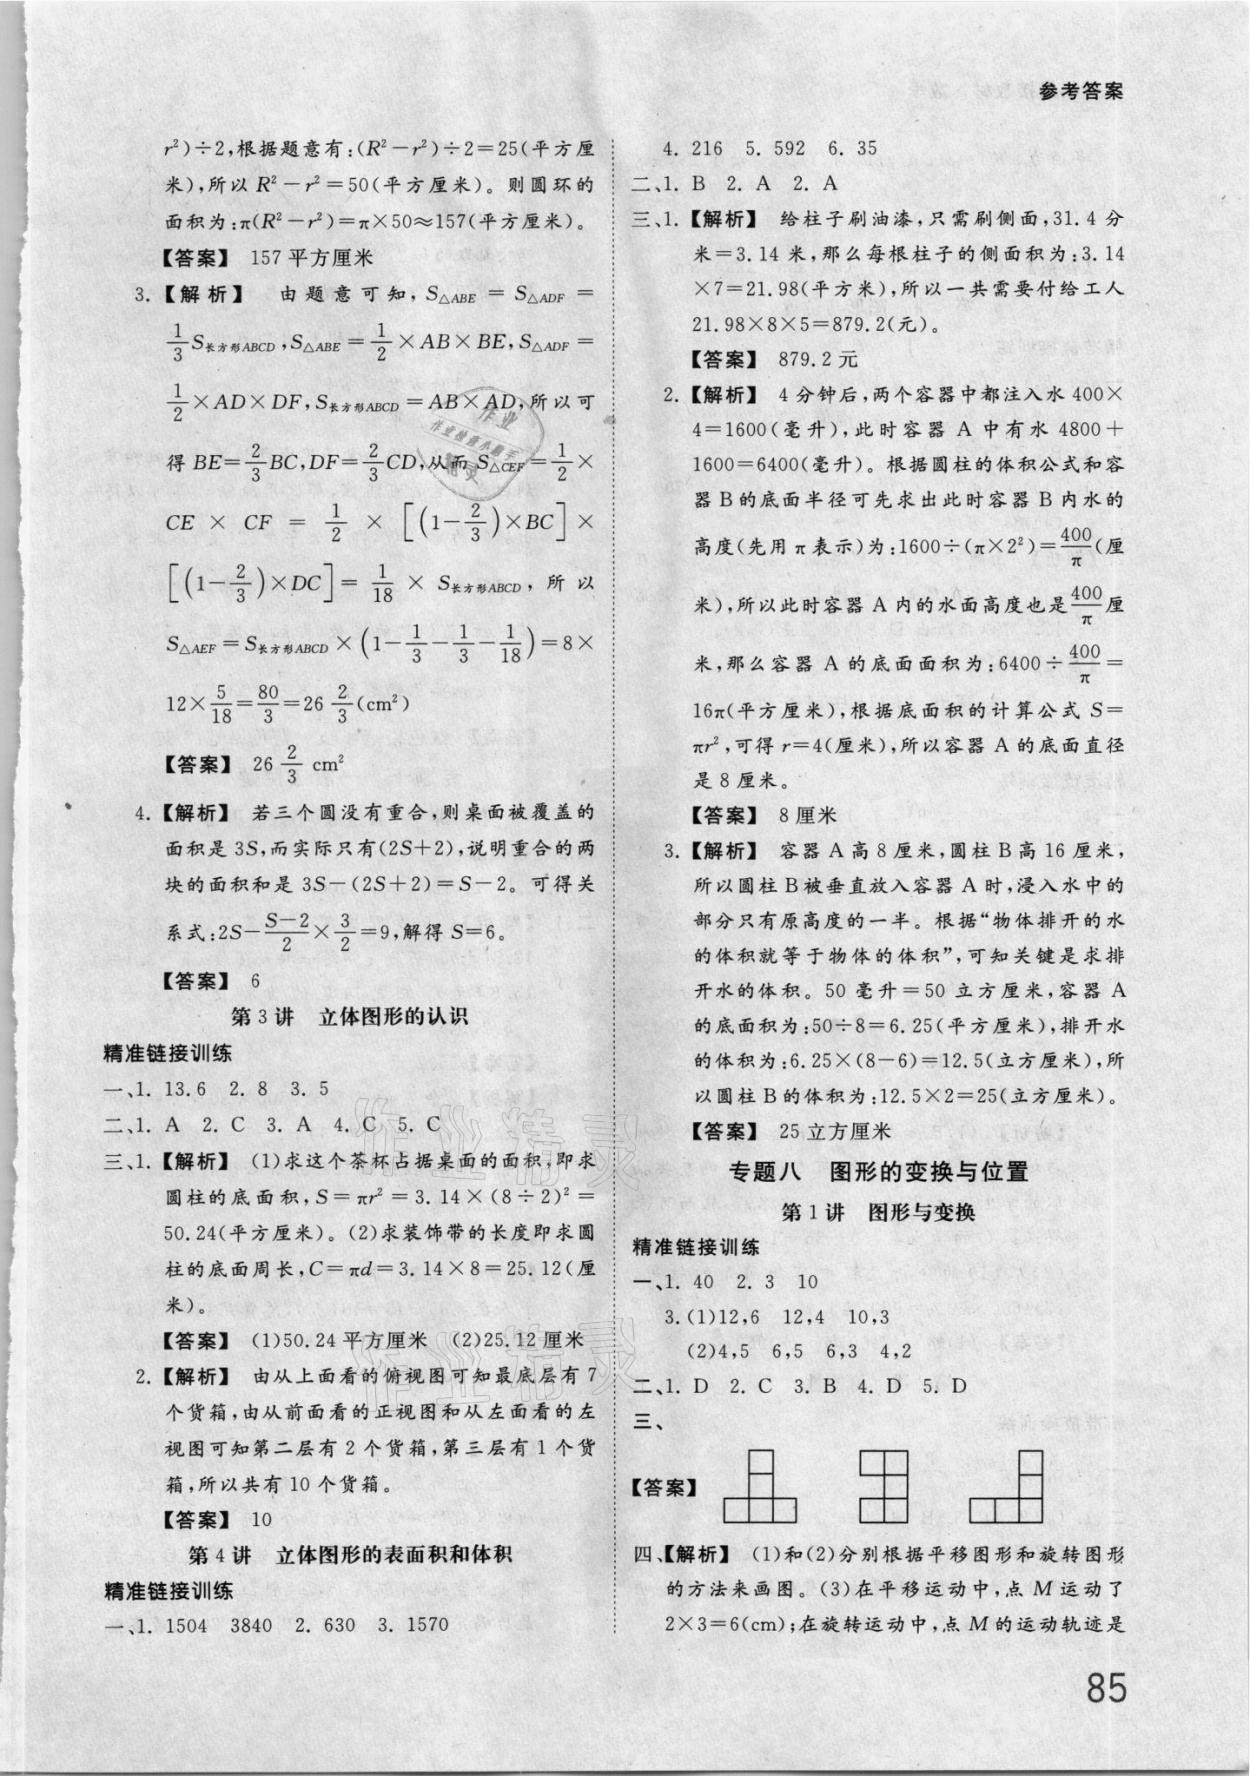 参考答案
r²)÷2,根据题意有:(R²－r²)÷2＝25(平方厘
米),所以 R²－r²＝50(平方厘米)。则圆环的
面积为:π(R²－r²)＝π×50≈157(平方厘米)。
【答案】 157平方厘米
3.【解析】 由题意可知,S△ABE＝S△ADF＝
1/3 S长方形ABCD,S△ABE＝1/2×AB×BE,S△ADF＝
1/2×AD×DF,S长方形ABCD＝AB×AD,所以可
得 BE＝2/3 BC,DF＝2/3 CD,从而 S△CEF＝1/2×
CE×CF＝1/2×[(1－2/3)×BC]×
[(1－2/3)×DC]＝1/18×S长方形ABCD,所以
S△AEF＝S长方形ABCD×(1－1/3－1/3－1/18)＝8×
12×5/18＝80/3＝26 2/3(cm²)
【答案】 26 2/3 cm²
4.【解析】 若三个圆没有重合,则桌面被覆盖的
面积是 3S,而实际只有(2S＋2),说明重合的两
块的面积和是 3S－(2S＋2)＝S－2。可得关
系式:2S－(S－2)/2×3/2＝9,解得 S＝6。
【答案】 6
第3讲 立体图形的认识
精准链接训练
一、1. 13.6 2. 8 3. 5
二、1. A 2. C 3. A 4. C 5. C
三、1.【解析】 (1)求这个茶杯占据桌面的面积,即求
圆柱的底面积,S＝πr²＝3.14×(8÷2)²＝
50.24(平方厘米)。(2)求装饰带的长度即求圆
柱的底面周长,C＝πd＝3.14×8＝25.12(厘
米)。
【答案】 (1)50.24平方厘米 (2)25.12厘米
2.【解析】 由从上面看的俯视图可知最底层有7
个货箱,由从前面看的正视图和从左面看的左
视图可知第二层有2个货箱,第三层有1个货
箱,所以共有10个货箱。
【答案】 10
第4讲 立体图形的表面积和体积
精准链接训练
一、1. 1504 3840 2. 630 3. 1570
4. 216 5. 592 6. 35
二、1. B 2. A 2. A
三、1.【解析】 给柱子刷油漆,只需刷侧面,31.4分
米＝3.14米,那么每根柱子的侧面积为:3.14
×7＝21.98(平方米),所以一共需要付给工人
21.98×8×5＝879.2(元)。
【答案】 879.2元
2.【解析】 4分钟后,两个容器中都注入水400×
4＝1600(毫升),此时容器 A 中有水 4800＋
1600＝6400(毫升)。根据圆柱的体积公式和容
器B的底面半径可先求出此时容器B内水的
高度(先用π表示)为:1600÷(π×2²)＝400/π(厘
米),所以此时容器 A 内的水面高度也是400/π厘
米,那么容器 A 的底面面积为:6400÷400/π＝
16π(平方厘米),根据底面积的计算公式 S＝
πr²,可得 r＝4(厘米),所以容器 A 的底面直径
是8厘米。
【答案】 8厘米
3.【解析】 容器A高8厘米,圆柱B高16厘米,
所以圆柱B被垂直放入容器A时,浸入水中的
部分只有原高度的一半。根据“物体排开的水
的体积就等于物体的体积”,可知关键是求排
开水的体积。50毫升＝50立方厘米,容器A
的底面积为:50÷8＝6.25(平方厘米),排开水
的体积为:6.25×(8－6)＝12.5(立方厘米),所
以圆柱B的体积为:12.5×2＝25(立方厘米)。
【答案】 25立方厘米
专题八 图形的变换与位置
第1讲 图形与变换
精准链接训练
一、1. 40 2. 3 10
3.(1)12,6 12,4 10,3
(2)4,5 6,5 6,3 4,2
二、1. D 2. C 3. B 4. D 5. D
三、
【答案】
四、【解析】 (1)和(2)分别根据平移图形和旋转图形
的方法来画图。(3)在平移运动中,点M运动了
2×3＝6(cm);在旋转运动中,点M的运动轨迹是
85
作业精灵
作业精灵
作业
作业检查小助手
精灵